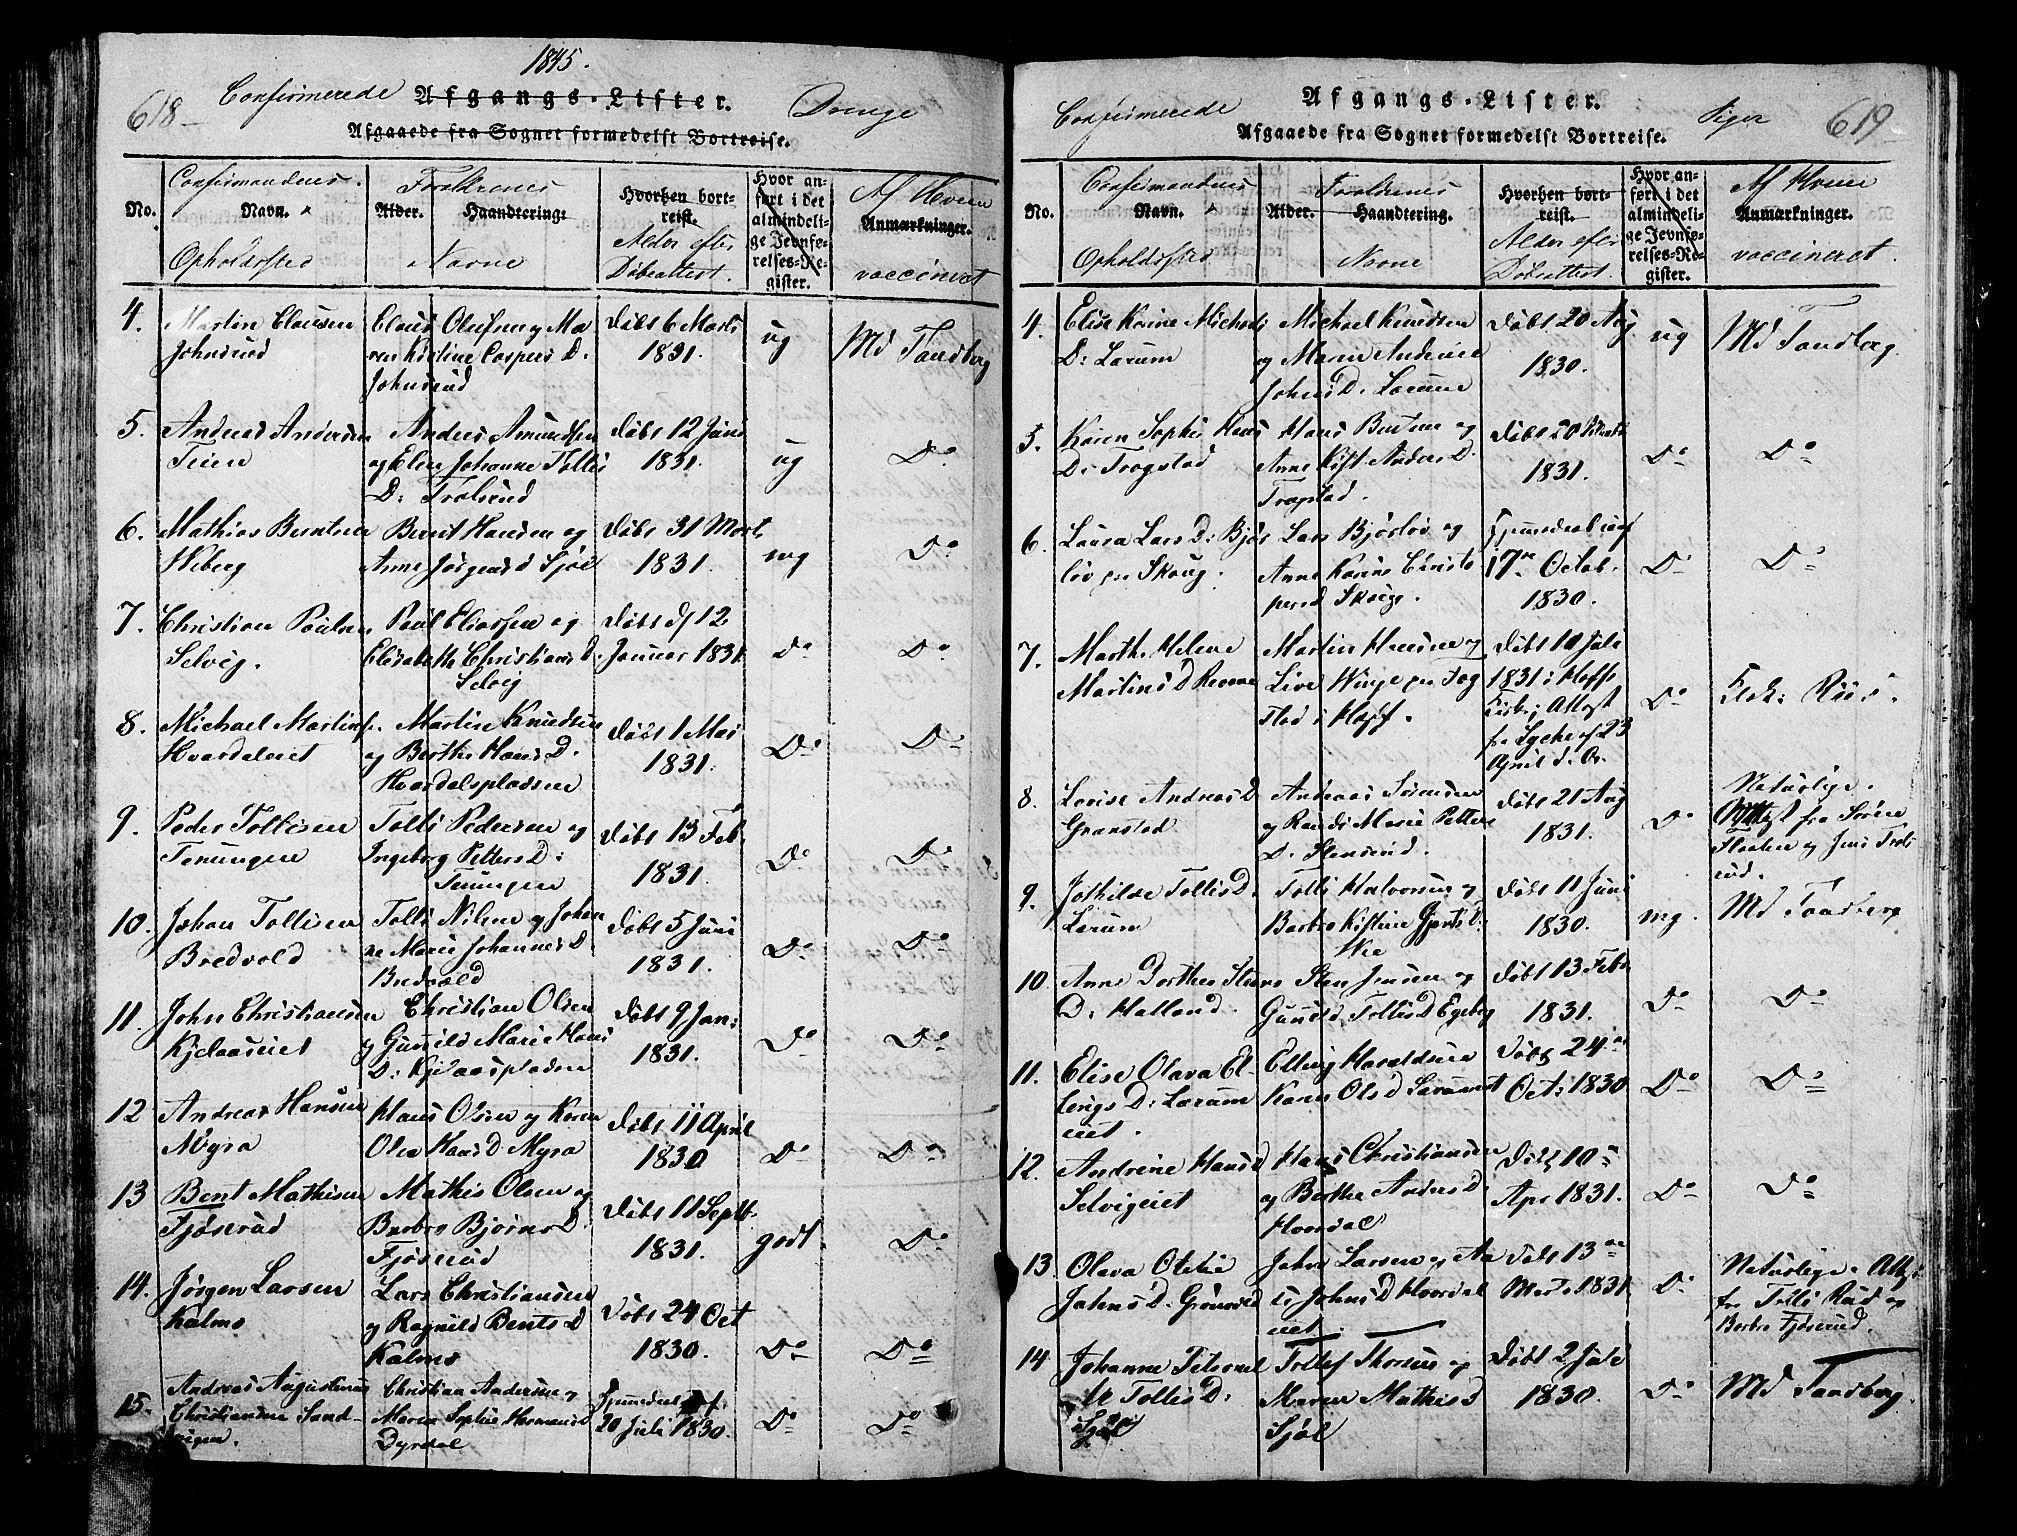 1845.
618
Confirmerede
Afgangs-Lister.
Drenge
Afgaaede fra Sognet formedelst Bortreise.
No.
Confirmandens
Navn.
Opholdssted
Alder.
Forældrenes
Haandtering.
Navne
Hvorhen bort-
reist.
Alder efter
Døbeattest.
Hvor an-
ført i det
almindeli-
ge Jevnfø-
relses-Re-
gister.
Af Hvem
Anmærkninger.
vaccineret
4.
Martin Clausen
Johnsrud
Claus Olufsen og Ma
ren Kistine Caspers D.
Johnsrud
Døbt 6 Marts
1831.
ug
Md Tandberg
5.
Andreas Andersen
Teien
Anders Amundsen
og Elen Johanne Tollis
D:
Døbt 12 Juni
1831.
ug
Do
6.
Mathias Berntsen
Wiberg
Bernt Hansen og
Anne Jørgens D Sjøl
Døbt 31 Marts
1831.
mg
Do
7.
Christian Paulsen
Selvig.
Paul Eliassen og
Elisabeth Christians D.
Selvig
Døbt d 12
Januar 1831.
Do
Do
8.
Michael Martins
Hvardaleiet
Martin Knudsen
og Berthe Hans D.
Hvardalspladsen
Døbt 1 Mai
1831.
Do
Do
9.
Peder Tollisen
Teningen
Tolli Pedersen og
Ingeborg Petters D:
Teningen
Døbt 13 Feb.
1831.
Do
Do
10.
Johan Tollisen
Bredvold
Tolli Nilsen og Johan
ne Marie Johannes D.
Bredvold
Døbt 5 Juni
1831.
Do
Do
11.
John Christiansen
Kjelaaseiet
Christian Olsen
og Gunild Marie Hans
D: Kjelaaspladsen
Døbt 9 Jan:
1831.
Do
Do
12
Andreas Hansen
Myra
Hans Olsen og Karen
Olea Hans D Myra
Døbt 11 April
1830
Do
Do
13
Bent Mathisen
Fjøserud
Mathis Olsen og
Barbro Bjørns D.
Fjøserud
Døbt 11 Septb.
1831.
godt.
Do
14.
Jørgen Larsen
Kalmo
Lars Christiansen
og Ragnild Bents D
Kalmo
Døbt 24 Oct
1830.
Do
Do
15.
Andreas Augustinus
Christiansen Sand-
vigen.
Christian Andersen og
Maren Sophie Hermans D
Dyrdal
20 Juli 1830.
Do
Do
Confirmerede
Afgangs-Lister.
Piger
619
Afgaaede fra Sognet formedelst Bortreise.
No.
Confirmandens
Navn.
Opholdssted
Alder.
Forældrenes
Haandtering.
Navne
Hvorhen bort-
reist.
Alder efter
Døbeattest.
Hvor an-
ført i det
almindeli-
ge Jevnfø-
relses-Re-
gister.
Af Hvem
Anmærkninger.
vaccineret.
4.
Elise Karine Michels
D: Larum
Michael Knudsen
og Maren Andrine
Johns D. Larum
Døbt 20 Aug
1830.
ug
Md Tandberg.
5.
Karen Sophie Hans
D: Trogstad
Hans Bentsen og
Anne Kist. Anders D.
Trogstad.
Døbt 20
1831.
Do
Do
6.
Laura Lars D: Bjør
løv paa Skoug.
Lars Bjørløv og
Anne Karine Christo
phers d Skoug.
17de Octob.
1830.
Do
Do
7.
Marthe Helene
Martins D
Martin Hansen og
Live Winge paa Fog
stad i Hoff.
Døbt 10 Juli
1831 i Hoffs
Kirke, Attest
fra Lyche af 23
April d. A.
Do
8.
Lovise Andreas D
Granstad
Andreas Sørensen
og Randi Marie Petters
D. Stenserud.
Døbt 21 Aug
1831.
Do
Naturlige.
Attest fra Søren
Floeten og Jens Trols
rud.
9.
Johilde Tollis D.
Larum
Tolli Halvorsen og
Barbro Kistine Gjerts D:
Wie
Døbt 11 Juni
1830.
mg.
Md Tandberg
10.
Anne Dorthea Stens
D: Halland.
Sten Jensen og
Gunild Tollis D Egeberg
Døbt 13 Febr
1831.
Do
Do
11.
Elise Olava El-
lings D: Larum
eiet.
Elling Haraldsen
Karen Ols D Larumeiet
Døbt 24de
Oct: 1830
Do
Do
12.
Andrine Hans D
Selvigeiet
Hans Christiansen
og Berthe Anders D.
Hvordal
Døbt 10de
Apr 1831.
Do
Do
13
Olava Otilie
Johns D. Grønvold
eiet.
John Larsen og An
Johns D Hvordal
Døbt 13de
Marts 1831.
Do
Naturlige. Attest
fra Tolli Rud og
Berthe Fjøserud.
14
Johanne Petronel
le Tollis D:
Sjøl
Tollef Thorsen og
Maren Mathis D
Sjøl
Døbt 2 Juli
1830.
Do
Md Tandberg.